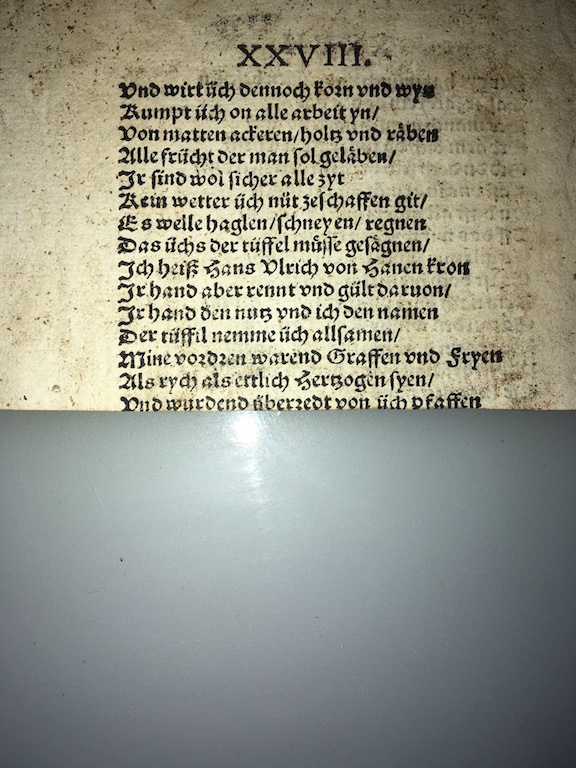 XXVIII.
Vnd wirt üch dennoch korn vnd wyn
Kumpt üch on alle arbeit yn/
Von matten ackeren/holtz vnd räben
Alle frücht der man sol geläben/
Jr sind wol sicher alle zyt
Kein wetter üch nüt zeschaffen git/
Es welle haglen/schneyen/ regnen
Das üchs der tüffel müsse gesägnen/
Jch heiß Hans Vlrich von Hanen kron
Jr hand aber rennt vnd gült daruon/
Jr hand den nutz vnd ich den namen
Der tüffil nemme üch allsamen/
Mine vordren warend Graffen vnd Fryen
Als rych als ettlich Hertzogen syen/
Vnd wurdend überredt von üch pfaffen